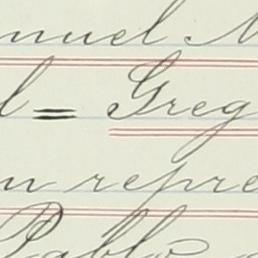 nuel M
l = Greg
n repre
Pablo